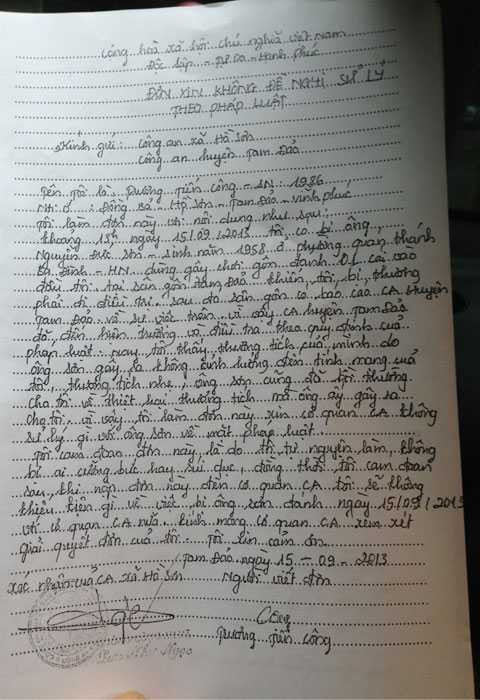 Cộng hoà xã hội chủ nghĩa việt nam
Độc lập - Tự Do - Hạnh phúc
ĐƠN XIN KHÔNG ĐỀ NGHỊ SỬ LÝ
THEO PHÁP LUẬT
Kính gửi: Công an xã Hồ Sơn
Công an huyện Tam Đảo
Tên tôi là: Dương Tiến Công - SN: 1986
Nơi ở: Đồng Bả - Hồ Sơn - Tam Đảo - Vĩnh phúc
Tôi làm đơn này với nội dung như sau:
Khoảng 15h ngày 15/09/2013 tôi có bị ông
Nguyễn Đức Sơn - Sinh năm 1958 ở phường quan thánh
Ba Đình - HN dùng gậy chơi gôn đánh 01 cái vào
đầu tôi tại sân gôn Tam Đảo khiến tôi bị thương
phải đi điều trị, sau đó sân gôn có báo cáo CA Huyện
Tam Đảo về sự việc trên vì vậy CA huyện Tam Đảo
đã đến hiện trường và điều tra theo quy định của
pháp luật. nay tôi thấy thương tích của mình do
ông Sơn gây ra không ảnh hưởng đến tính mạng của
tôi, thương tích nhẹ, ông Sơn cũng đã bồi thường
Cho tôi về thiệt hại thương tích mà ông ấy gây ra
cho tôi, vì vậy tôi làm đơn này xin cơ quan CA không
sử lý gì với ông Sơn về mặt pháp luật.
Tôi cam đoan đơn này là do tôi tự nguyện làm, không
bị ai cưỡng bức hay sui dục, đồng thời tôi cam đoan
sau khi nộp đơn này đến cơ quan CA tôi sẽ không
khiếu kiện gì về việc bị ông Sơn đánh ngày 15/09/2013
với cơ quan CA nữa. kính mong cơ quan CA xem xét
giải quyết đơn của tôi. Tôi xin cảm ơn
Tam Đảo ngày 15 - 09 - 2013
Xác nhận của CA xã Hồ Sơn Người viết đơn
Công
Ngọc Dương Tiến Công